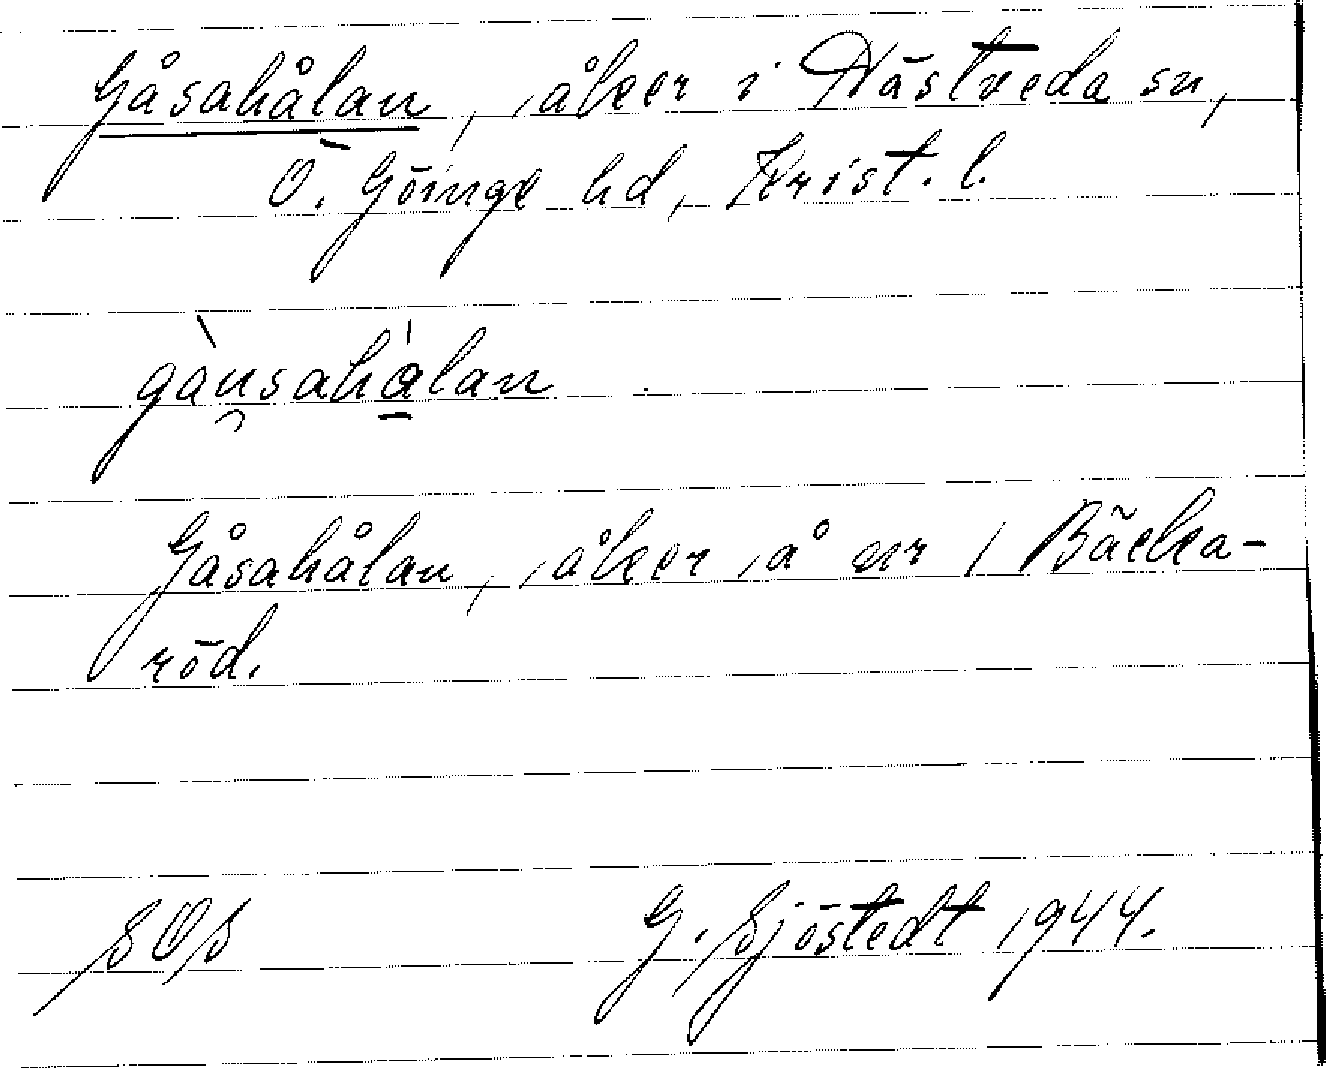 Gåsahålan, åker i Hästveda sn,
Ö. Göinge hd, Krist. l.
gàu̯sahålan
Gåsahålan, åker å nr 1 Bäcka-
röd.
SOS
G. Sjöstedt 1944.